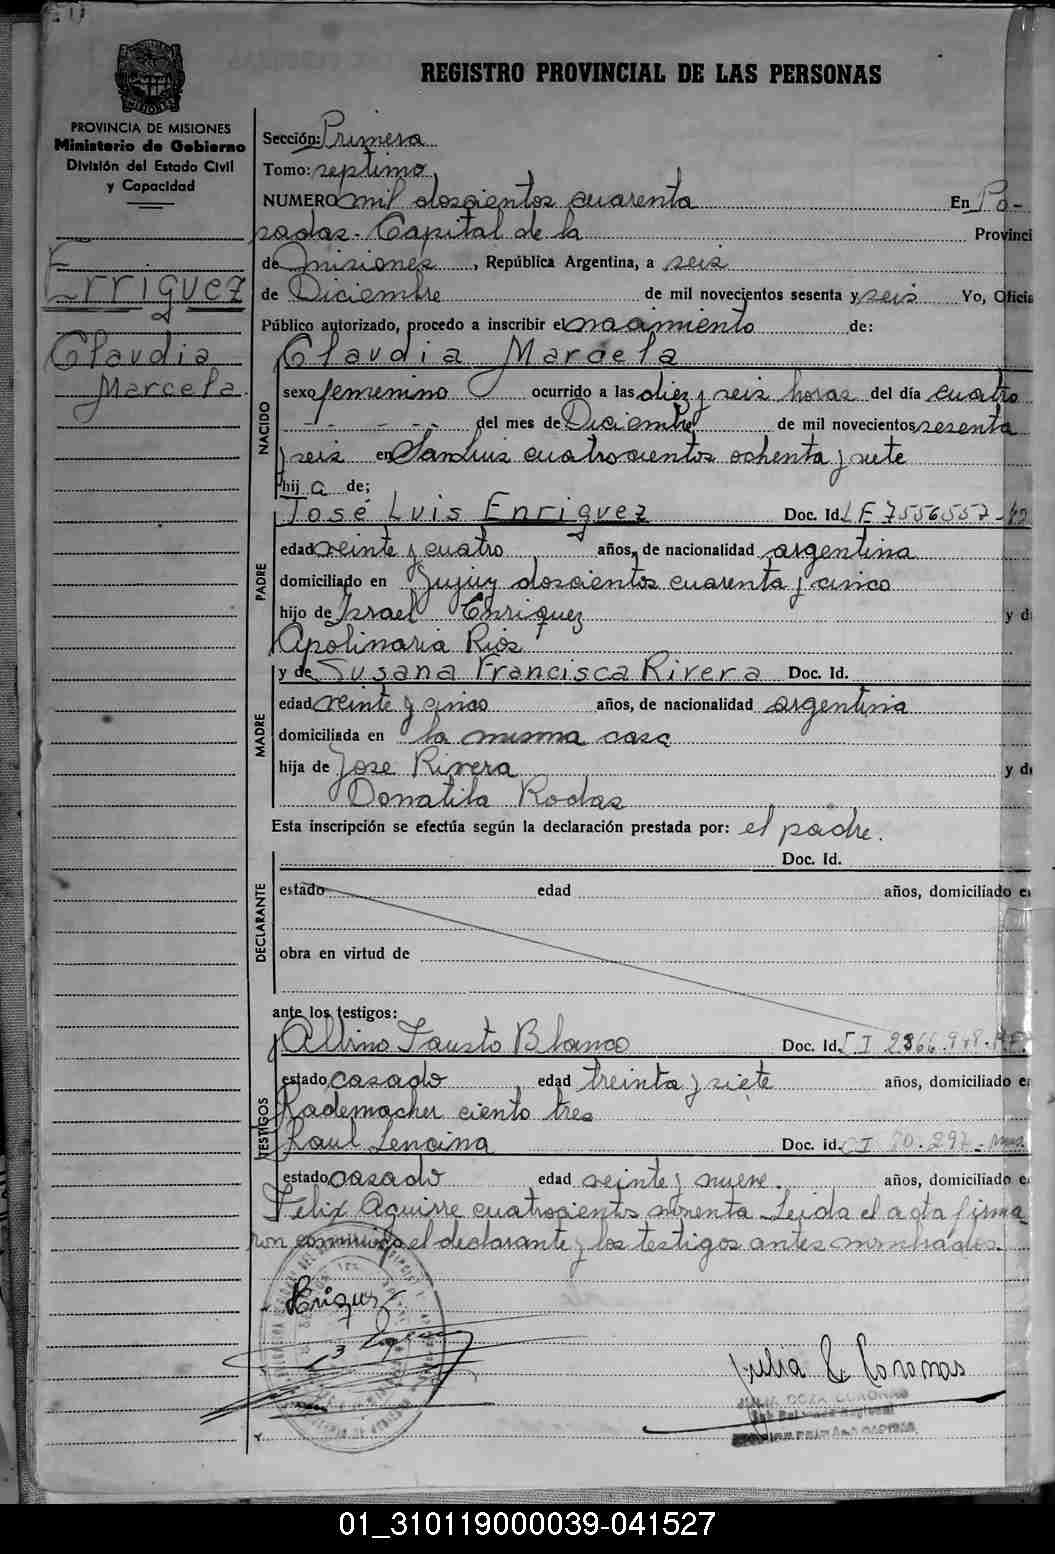 REGISTRO PROVINCIAL DE LAS PERSONAS
PROVINCIA DE MISIONES
Ministerio de Gobierno
División del Estado Civil
y Capacidad
Erriquez
Claudia
Marcela
Sección: Primera
Tomo: septimo
NUMERO mil doscientos cuarenta En Po-
sadas. Capital de la Provinci
de Misiones, República Argentina, a seis
de Diciembre de mil novecientos sesenta y seis Yo, Oficia
Público autorizado, procedo a inscribir el nacimiento de:
Claudia Marcela
NACIDO
sexo femenino ocurrido a las diez y seis horas del día cuatro
- - - - - del mes de Diciembre de mil novecientos sesenta
y seis en San Luis cuatrocientos ochenta y siete
hij a de;
PADRE
José Luis Enriquez Doc. Id. LE 7556557
edad veinte y cuatro años, de nacionalidad argentina
domiciliado en Jujuy doscientos cuarenta y cinco
hijo de Israel Enriquez y d
Apolinaria Rios
MADRE
y de Susana Francisca Rivera Doc. Id.
edad veinte y cinco años, de nacionalidad argentina
domiciliada en la misma casa
hija de Jose Rivera y d
Donatila Rodas
Esta inscripción se efectúa según la declaración prestada por: el padre.
DECLARANTE
Doc. Id.
estado edad años, domiciliado e
obra en virtud de
ante los testigos:
TESTIGOS
Albino Fausto Blanco Doc. Id. CI
estado casado edad treinta y siete años, domiciliado e
Rademacher ciento tres
Raul Lencina Doc. id. CI
estado casado edad veinte y nueve. años, domiciliado e
Felix Aguirre cuatrocientos noventa. Leida el acta firma
ron conmigo el declarante y los testigos antes nombrados.
Julia C de Coronas
01_310119000039-041527